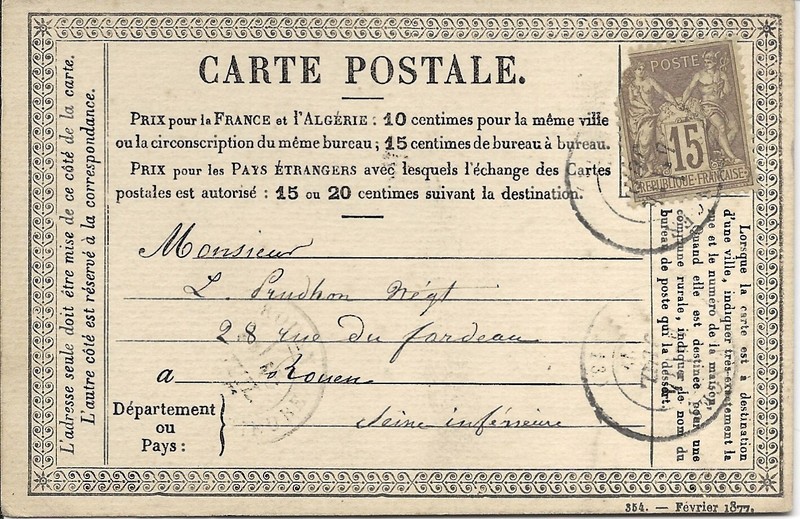 CARTE POSTALE.
PRIX pour la FRANCE et l'ALGÉRIE : 10 centimes pour la même ville
ou la circonscription du même bureau ; 15 centimes de bureau à bureau.
PRIX pour les PAYS ÉTRANGERS avec lesquels l'échange des Cartes
postales est autorisé : 15 ou 20 centimes suivant la destination.
POSTE
15
REPUBLIQUE FRANCAISE
Monsieur
L. Prudhon Négt
28 rue du fardeau
a Rouen
Département
ou
Pays :
Seine inférieure
L'adresse seule doit être mise de ce côté de la carte.
L'autre côté est réservé à la correspondance.
Lorsque la carte est à destination
d'une ville, indiquer très-exactement la
rue et le numéro de la maison.
Quand elle est destinée pour une
commune rurale, indiquer le nom du
bureau de poste qui la dessert.
354. — Février 1877.